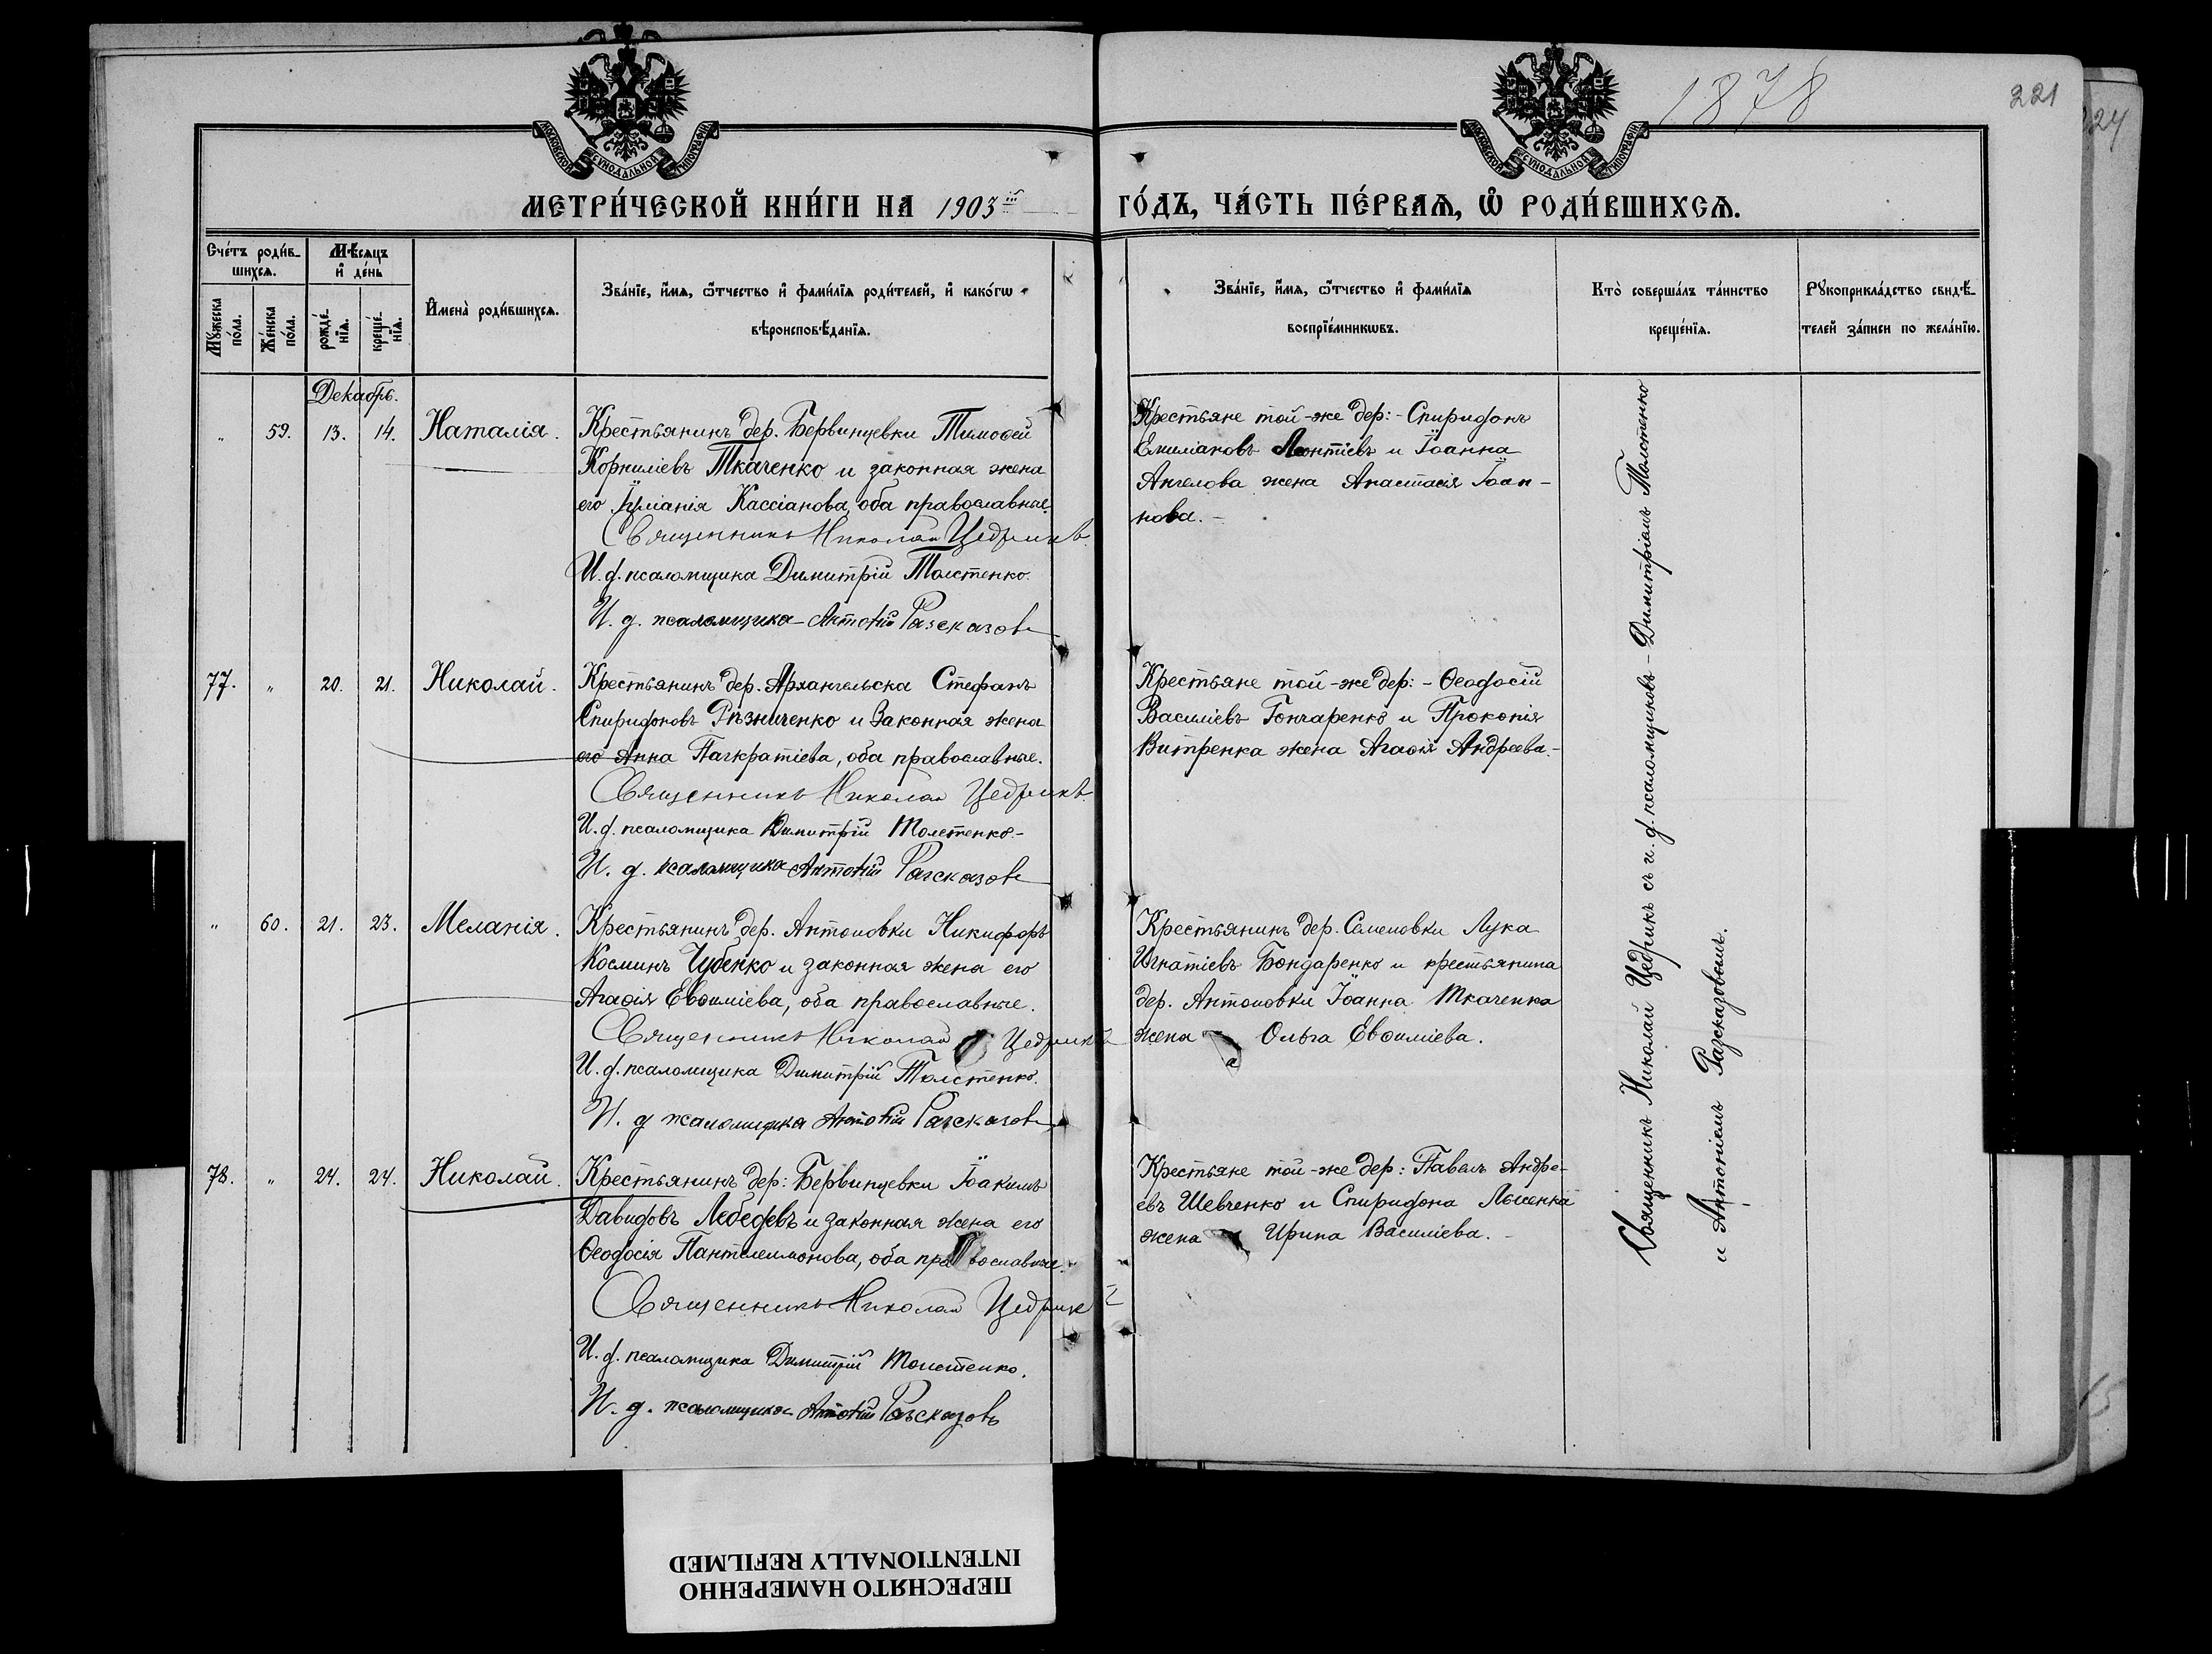 1878
221
224
МОСКОВСКОЙ СѴНОДАЛЬНОЙ ТИПОГРАФІИ
МОСКОВСКОЙ СѴНОДАЛЬНОЙ ТИПОГРАФІИ
МЕТРИ́ЧЕСКОЙ КНИ́ГИ НА 1903 ій ГО́ДЪ, ЧА́СТЬ ПЕ́РВАѦ, Ѡ҆ РОДИ́ВШИХСѦ.
Сче́тъ роди́в-
шихсѧ.
Мꙋ́жеска по́ла.
Же́нска по́ла.
Мѣ́сѧцъ
и҆ де́нь
рожде́-
нїѧ.
креще́-
нїѧ.
И҆мена̀ роди́вшихсѧ.
Зва́нїе, и҆́мѧ, ѻ҆́тчество и҆ фами́лїѧ роди́телей, и҆ како́гѡ
вѣроисповѣ́данїѧ.
Зва́нїе, и҆́мѧ, ѻ҆́тчество и҆ фами́лїѧ
воспрїе́мникѡвъ.
Кто̀ соверша́лъ та́инство
креще́нїѧ.
Рꙋкоприкла́дство свидѣ́-
телей за́писи по жела́нїю.
Декабрь.
" 59. 13. 14. Наталія.
Крестьянинъ дер. Бервинцевки Тимоѳей
Корниліевъ Ткаченко и законная жена
его Іуліанія Кассіанова, оба православные.
Священникъ Николай Цедрикъ
И. д. псаломщика Димитрій Толстенко.
И. д. псаломщика Антоній Разсказовъ
Крестьяне той-же дер:- Спиридонъ
Емиліановъ Леонтіевъ и Іоанна
Ангелова жена Анастасія Іоан-
нова.-
77. " 20. 21. Николай.
Крестьянинъ дер. Архангельска Стефанъ
Спиридоновъ Рѣзниченко и Законная жена
его Анна Пагкратіева, оба православные.
Священникъ Николай Цедрикъ
И. д. псаломщика Димитрій Толстенко.-
И. д. псаломщика Антоній Разсказовъ
Крестьяне той-же дер:- Ѳеодосій
Василіевъ Гончаренко и Прокопія
Витренка жена Агаѳія Андреева.-
" 60. 21. 23. Меланія.
Крестьянинъ дер. Антоновки Никифоръ
Косминъ Чубенко и законная жена его
Агаѳія Евѳиміева, оба православные.
Священникъ Николай Цедрикъ
И. д. псаломщика Димитрій Толстенко.
И. д псаломщика Антоній Разсказовъ
Крестьянинъ дер. Семеновки Лука
Игнатіевъ Бондаренко и крестьянина
дер. Антоновки Іоанна Ткаченка
жена Ольга Евѳиміева.
78. " 24. 24. Николай.
Крестьянинъ дер: Бервинцевки Іоакимъ
Давидовъ Лебедевъ и законная жена его
Ѳеодосія Пантелеимонова, оба православные.
Священникъ Николай Цедрикъ
И. д. псаломщика Димитрій Толстенко.
И. д. псаломщика Антоній Разсказовъ
Крестьяне той-же дер: Павелъ Андре-
евъ Шевченко и Спиридона Лысенка
жена Ирина Василіева.-
Священникъ Николай Цедрикъ съ и. д. псаломщиковъ - Димитріемъ Толстенко
и Антоніемъ Разсказовымъ.
15
ПЕРЕСНЯТО НАМЕРЕННО
INTENTIONALLY REFILMED